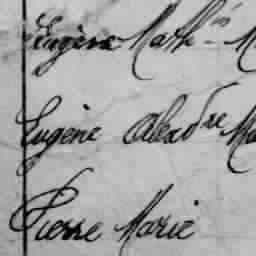 Eugène Math.in M
Eugène Alexdre Ma
Pierre Marie